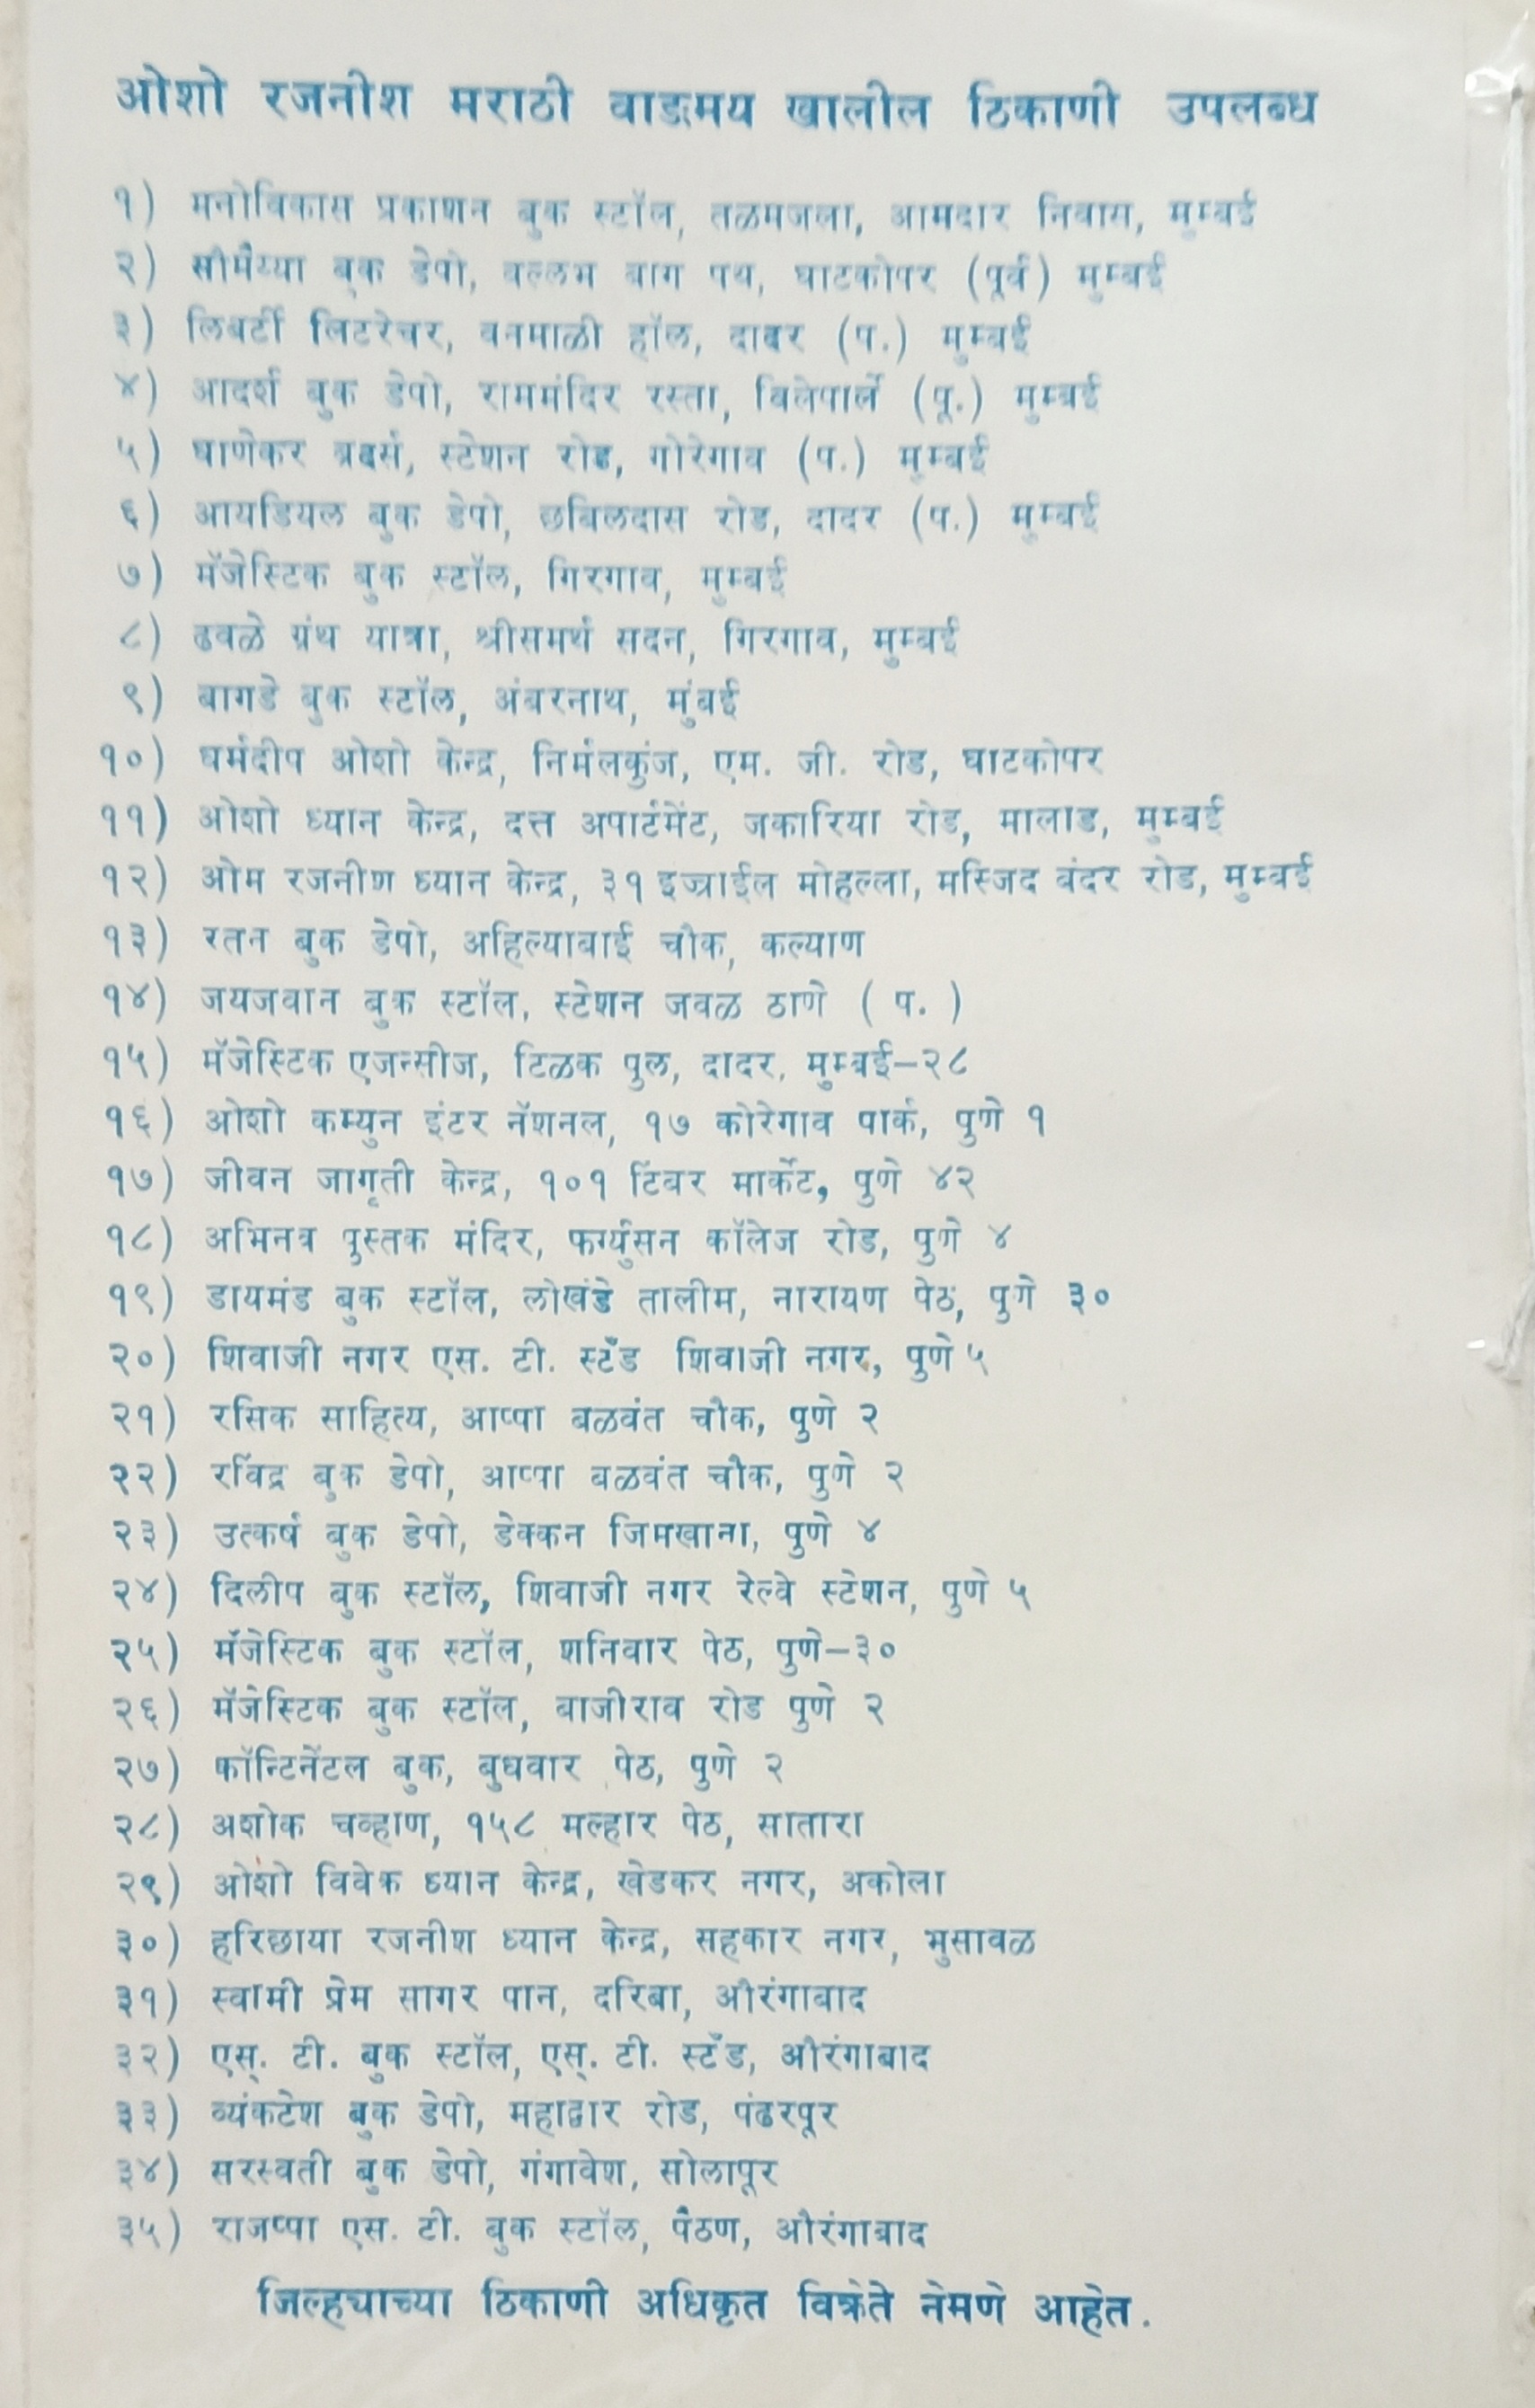 ओशो रजनीश मराठी वाङमय खालील ठिकाणी उपलब्ध
१) मनोविकास प्रकाशन बुक स्टॉल, तळमजला, आमदार निवास, मुम्बई
२) सौमैय्या बुक डेपो, वल्लभ बाग पथ, घाटकोपर (पूर्व) मुम्बई
३) लिबर्टी लिटरेचर, वनमाळी हॉल, दादर (प.) मुम्बई
४) आदर्श बुक डेपो, राममंदिर रस्ता, विलेपार्ले (पू.) मुम्बई
५) घाणेकर ब्रदर्स, स्टेशन रोड, गोरेगाव (प.) मुम्बई
६) आयडियल बुक डेपो, छबिलदास रोड, दादर (प.) मुम्बई
७) मॅजेस्टिक बुक स्टॉल, गिरगाव, मुम्बई
८) ढवळे ग्रंथ यात्रा, श्रीसमर्थ सदन, गिरगाव, मुम्बई
९) बागडे बुक स्टॉल, अंबरनाथ, मुंबई
१०) धर्मदीप ओशो केन्द्र, निर्मलकुंज, एम. जी. रोड, घाटकोपर
११) ओशो ध्यान केन्द्र, दत्त अपार्टमेंट, जकारिया रोड, मालाड, मुम्बई
१२) ओम रजनीश ध्यान केन्द्र, ३१ इज्राईल मोहल्ला, मस्जिद बंदर रोड, मुम्बई
१३) रतन बुक डेपो, अहिल्याबाई चौक, कल्याण
१४) जयजवान बुक स्टॉल, स्टेशन जवळ ठाणे ( प. )
१५) मॅजेस्टिक एजन्सीज, टिळक पुल, दादर, मुम्बई–२८
१६) ओशो कम्युन इंटर नॅशनल, १७ कोरेगाव पार्क, पुणे १
१७) जीवन जागृती केन्द्र, १०१ टिंबर मार्केट, पुणे ४२
१८) अभिनव पुस्तक मंदिर, फर्ग्युसन कॉलेज रोड, पुणे ४
१९) डायमंड बुक स्टॉल, लोखंडे तालीम, नारायण पेठ, पुणे ३०
२०) शिवाजी नगर एस. टी. स्टँड शिवाजी नगर, पुणे ५
२१) रसिक साहित्य, आप्पा बळवंत चौक, पुणे २
२२) रविंद्र बुक डेपो, आप्पा बळवंत चौक, पुणे २
२३) उत्कर्ष बुक डेपो, डेक्कन जिमखाना, पुणे ४
२४) दिलीप बुक स्टॉल, शिवाजी नगर रेल्वे स्टेशन, पुणे ५
२५) मॅजेस्टिक बुक स्टॉल, शनिवार पेठ, पुणे–३०
२६) मॅजेस्टिक बुक स्टॉल, बाजीराव रोड पुणे २
२७) कॉन्टिनेंटल बुक, बुधवार पेठ, पुणे २
२८) अशोक चव्हाण, १५८ मल्हार पेठ, सातारा
२९) ओशो विवेक ध्यान केन्द्र, खेडकर नगर, अकोला
३०) हरिछाया रजनीश ध्यान केन्द्र, सहकार नगर, भुसावळ
३१) स्वामी प्रेम सागर पान, दरिबा, औरंगाबाद
३२) एस्. टी. बुक स्टॉल, एस्. टी. स्टँड, औरंगाबाद
३३) व्यंकटेश बुक डेपो, महाद्वार रोड, पंढरपूर
३४) सरस्वती बुक डेपो, गंगावेश, सोलापूर
३५) राजप्पा एस. टी. बुक स्टॉल, पैठण, औरंगाबाद
जिल्ह्याच्या ठिकाणी अधिकृत विक्रेते नेमणे आहेत.